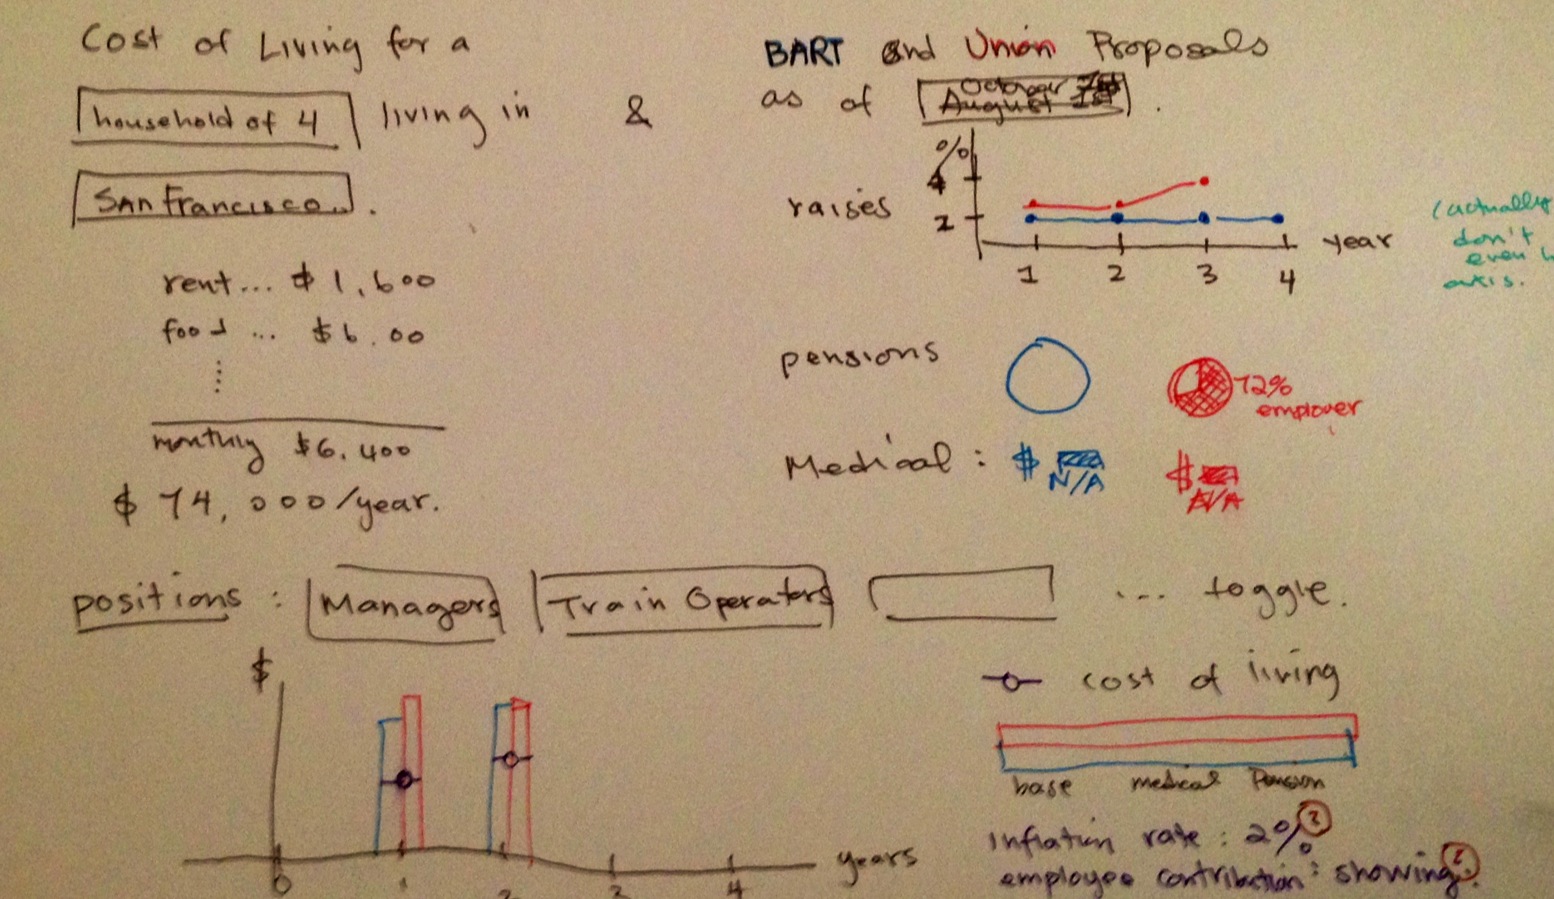 Cost of Living for a
household of 4 living in &
San Francisco...
rent... $1,600
food ... $6.00
monthly $6,400
$74,000/year.
BART and Union Proposals
as of October 1st
August 1st
raises
%
4
2
1 2 3 4 year
(actually
don't
even
axis.
pensions
72%
employer
Medical : $ N/A $ N/A
positions : Managers Train Operators ... toggle.
$
0 1 2 3 4 years
cost of living
base medical Pension
Inflation rate : 2% ?
employee contribution : showing. ?